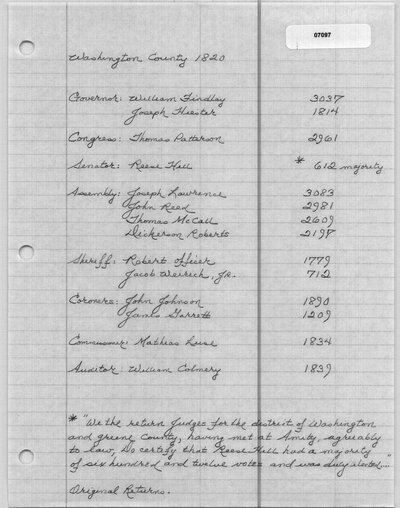 07097
Washington County 1820
Governor: William Findlay 3037
Joseph Hiester 1814
Congress: Thomas Patterson 2961
Senator: Reese Hill * 612 majority
Assembly: Joseph Lawrence 3083
John Reed 2981
Thomas McCall 2609
Dickerson Roberts 2198
Sheriff: Robert Officer 1779
Jacob Weirich, Jr. 712
Coroners: John Johnson 1890
James Garrett 1209
Commissioner: Mathias Luse 1834
Auditor: William Colmery 1839
* "We the return Judges for the district of Washington
and Greene County, having met at Amity, agreeably
to law, Do certify that Reese Hill had a majority
of six hundred and twelve votes and was duly elected..."
Original Returns.